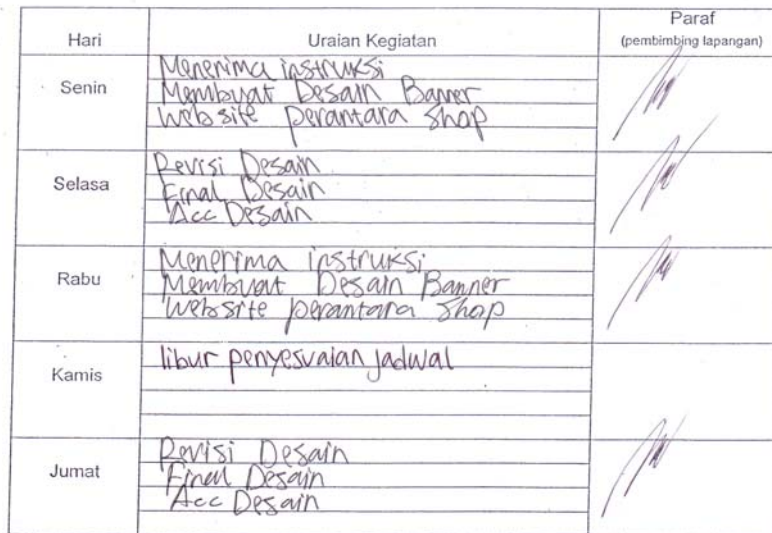 Hari Uraian Kegiatan Paraf
(pembimbing lapangan)
Senin
Menerima instruksi
Membuat Desain Banner
Website perantara shop
Selasa
Revisi Desain
Final Desain
Acc Desain
Rabu
Menerima instruksi
Membuat Desain Banner
Website perantara shop
Kamis
libur penyesuaian jadwal
Jumat
Revisi Desain
Final Desain
Acc Desain